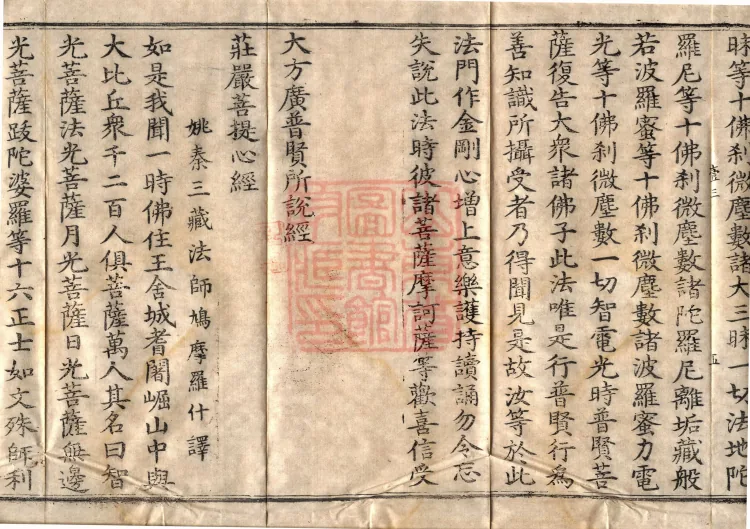 昧等十佛刹微塵數諸大三昧一切法地陀
羅尼等十佛刹微塵數諸陀羅尼離垢藏般
若波羅蜜等十佛刹微塵數諸波羅蜜力電
光等十佛刹微塵數一切智電光時普賢菩
薩復告大衆諸佛子此法唯是行普賢行爲
善知識所攝受者乃得聞見是故汝等於此
法門作金剛心增上意樂護持讀誦勿令忘
失說此法時彼諸菩薩摩訶薩等歡喜信受
大方廣普賢所說經
莊嚴菩提心經
姚秦三藏法師鳩摩羅什譯
如是我聞一時佛住王舍城耆闍崛山中與
大比丘衆千二百人俱菩薩萬人其名曰智
光菩薩法光菩薩月光菩薩日光菩薩無邊
光菩薩跋陀婆羅等十六正士如文殊師利